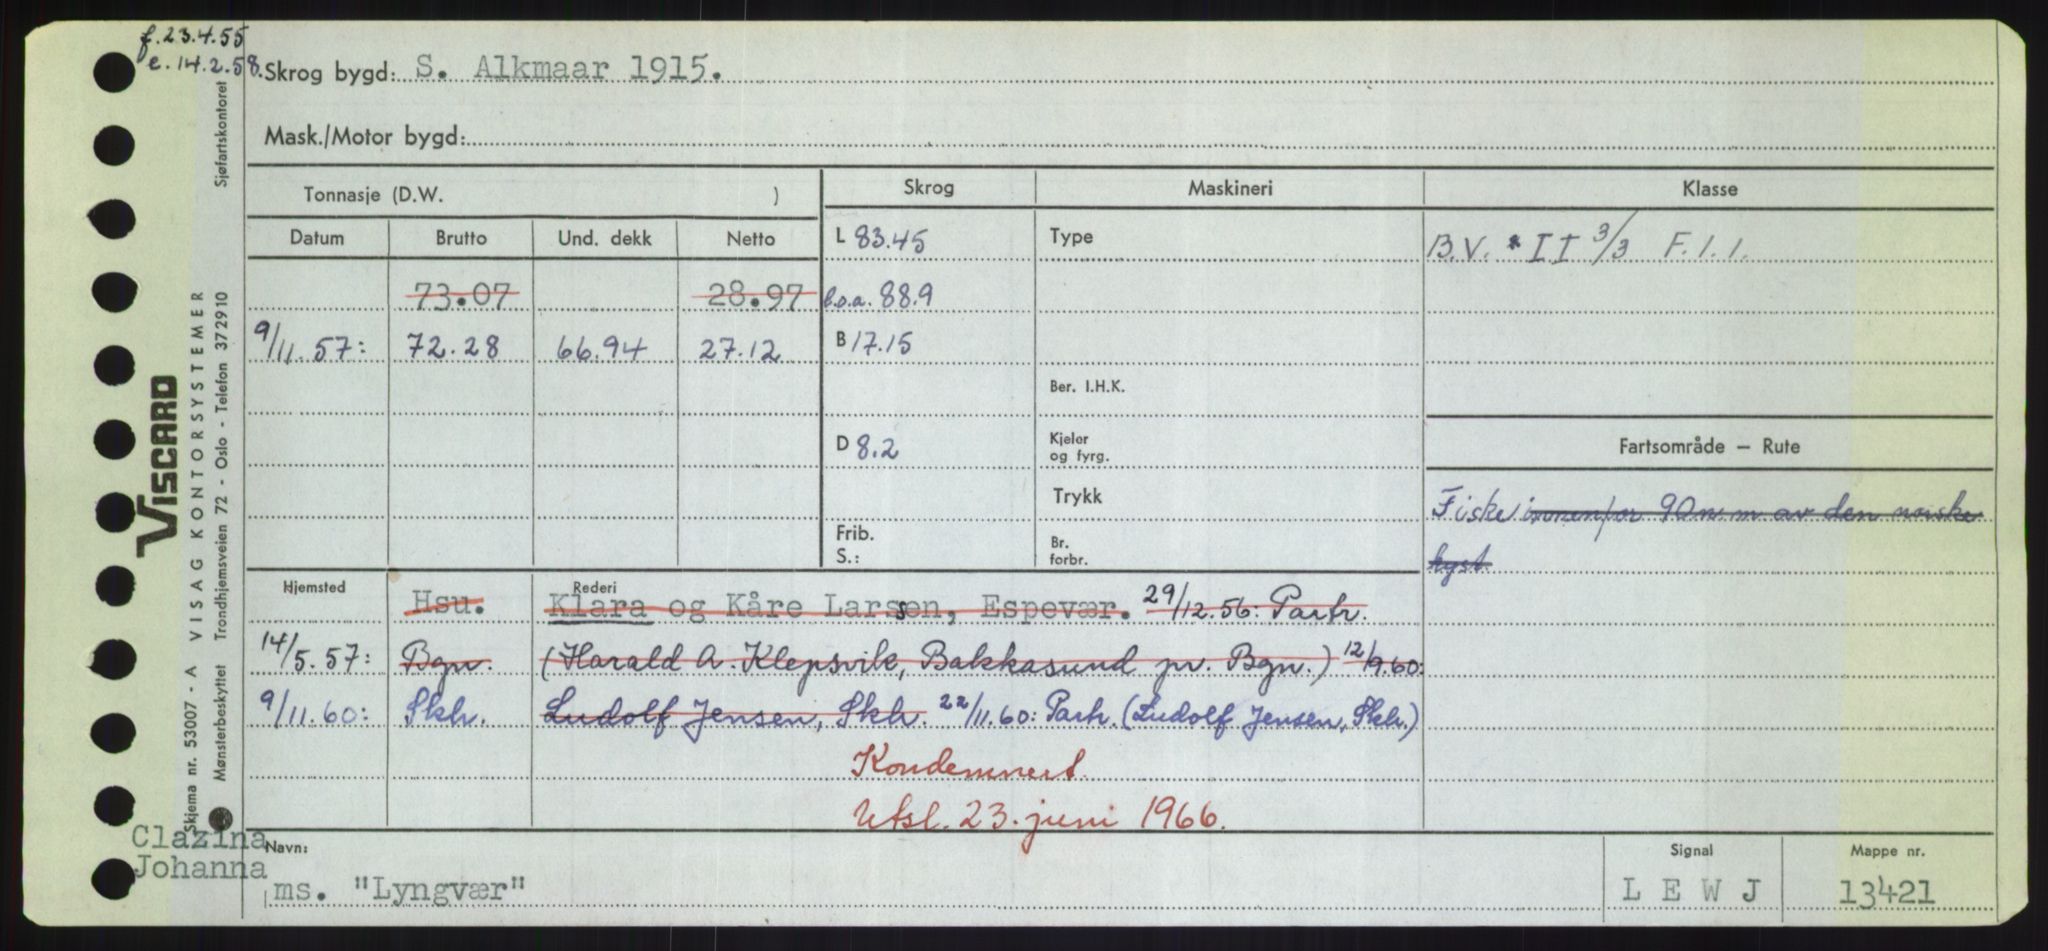 f. 23.4.55
e. 14.2.58.
Skrog bygd: S. Alkmaar 1915.
Mask./Motor bygd:
Tonnasje (D.W. )
Skrog Maskineri Klasse
Datum Brutto Und. dekk Netto
L 83.45 Type B.V. * II 3/3 F.1.1.
73.07 28.97 l.o.a. 88.9
9/11.57: 72.28 66.94 27.12 B 17.15
Ber. I.H.K.
D 8.2 Kjeler og fyrg. Fartsområde – Rute
Trykk Fiske innenfor 90 n.m av den norske
Frib. S.: Br. forbr. kyst.
Hjemsted Rederi
Hsu. Klara og Kåre Larsen, Espevær. 29/12.56: Partr.
14/5.57: Bgn. (Harald A. Klepsvik, Bakkasund pr. Bgn.) 12/9.60:
9/11.60: Skh. Ludolf Jensen, Skh. 22/11.60: Partr. (Ludolf Jensen, Skh.)
Kondemnert.
Utsl. 23. juni 1966.
Clazina
Johanna
Navn: Signal Mappe nr.
ms. "Lyngvær" L E W J 13421
VISCARD
Skjema nr. 53007 - A VISAG KONTORSYSTEMER
Mønsterbeskyttet Trondhjemsveien 72 - Oslo - Telefon 372910 Sjøfartskontoret